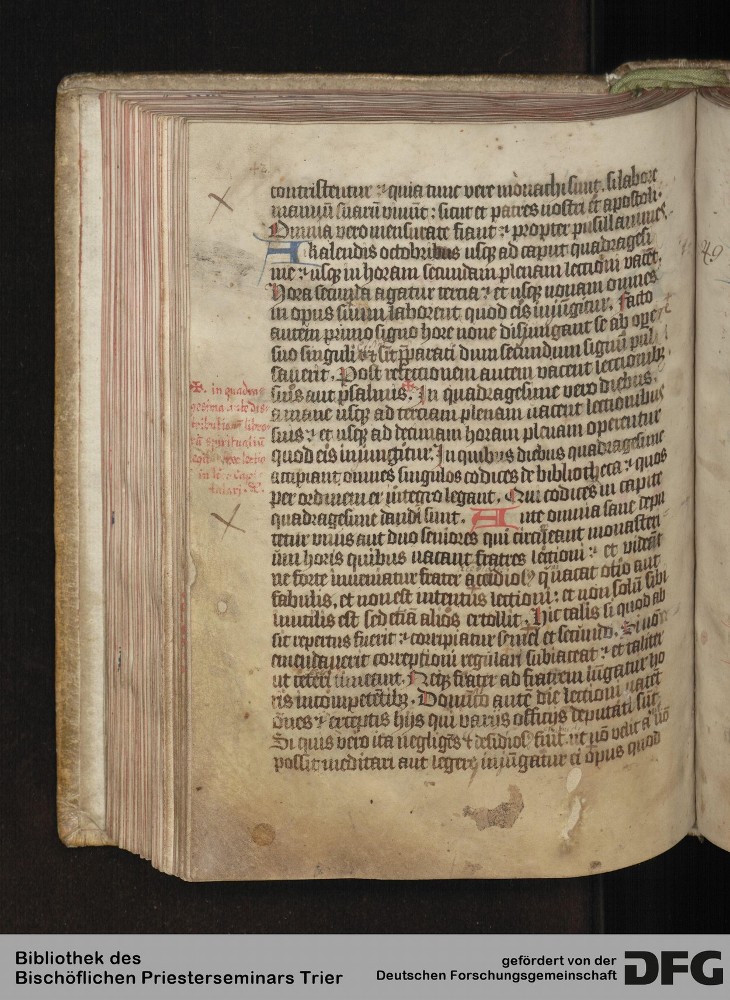 contristentur : quia tunc vere monachi sunt, si labore
manuū suarū vivūt : sicut et patres nostri et apostoli.
Omnia vero mensurate fiant : propter pusillanimes.
A kalendis octobribus usqꝫ ad caput quadragesi
me : usqꝫ in horam secundam plenam lectioni vacēt.
Hora secunda agatur tercia : et usqꝫ nonam omnes
in opus suum laborent quod eis iniūgitur. Facto
autem primo signo hore none disiungant se ab opere
suo singuli & sīt parati dum secundum signū pul
saverit. Post refectionem autem vacent lectionibꝫ
suis aut psalmis. In quadragesime vero diebus,
a mane usqꝫ ad terciam plenam vacent lectionibus
suis : et usqꝫ ad decimam horam plenam operentur
quod eis iniungitur. In quibus diebus quadragesime
accipiant omnes singulos codices de bibliotheca : quos
per ordinem ex integro legant. Qui codices in capite
quadragesime dandi sunt. Ante omnia sane depu
tetur unus aut duo seniores qui circueant monasteri
um horis quibus vacant fratres lectioni : et videāt
ne forte inveniatur frater accidiosꝰ q̄ vacat otio aut
fabulis, et non est intentus lectioni : et non solū sibi
inutilis est sed etiā alios extollit. Hic talis si quod ab
sit repertus fuerit : corripiatur semel et secundo. Si nō
emendaverit correptioni regulari subiaceat : et taliter
ut ceteri timeant. Neqꝫ frater ad fratrem iūgatur ho
ris incompetētibꝫ. Domīico autē die lectioni vacēt
ōnes : exceptis hijs qui varijs officijs deputati sūt.
Si quis vero ita negligēs & desidiosꝰ fuīt, ut nō velit aut nō
possit meditari aut legere iniūgatur ei opus quod
in quadra
gesima ante dis
tributionem libro
rū spiritualiū
49
Bibliothek des
Bischöflichen Priesterseminars Trier
gefördert von der
Deutschen Forschungsgemeinschaft
DFG